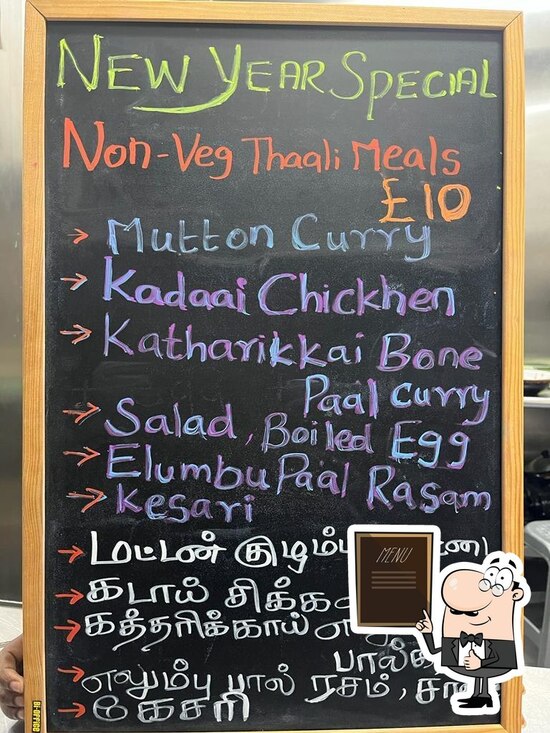 NEW YEAR SPECIAL
Non-Veg Thaali Meals
£10
→ Mutton Curry
→ Kadaai Chickhen
→ Katharikkai Bone
Paal curry
→ Salad, Boiled Egg
→ Elumbu Paal Rasam
→ Kesari
→ மட்டன்
→ கடாய்
→ கத்தரிக்காய்
→ எலும்பு பால் ரசம்,
→ கேசரி
MENU
BI-OFFICE